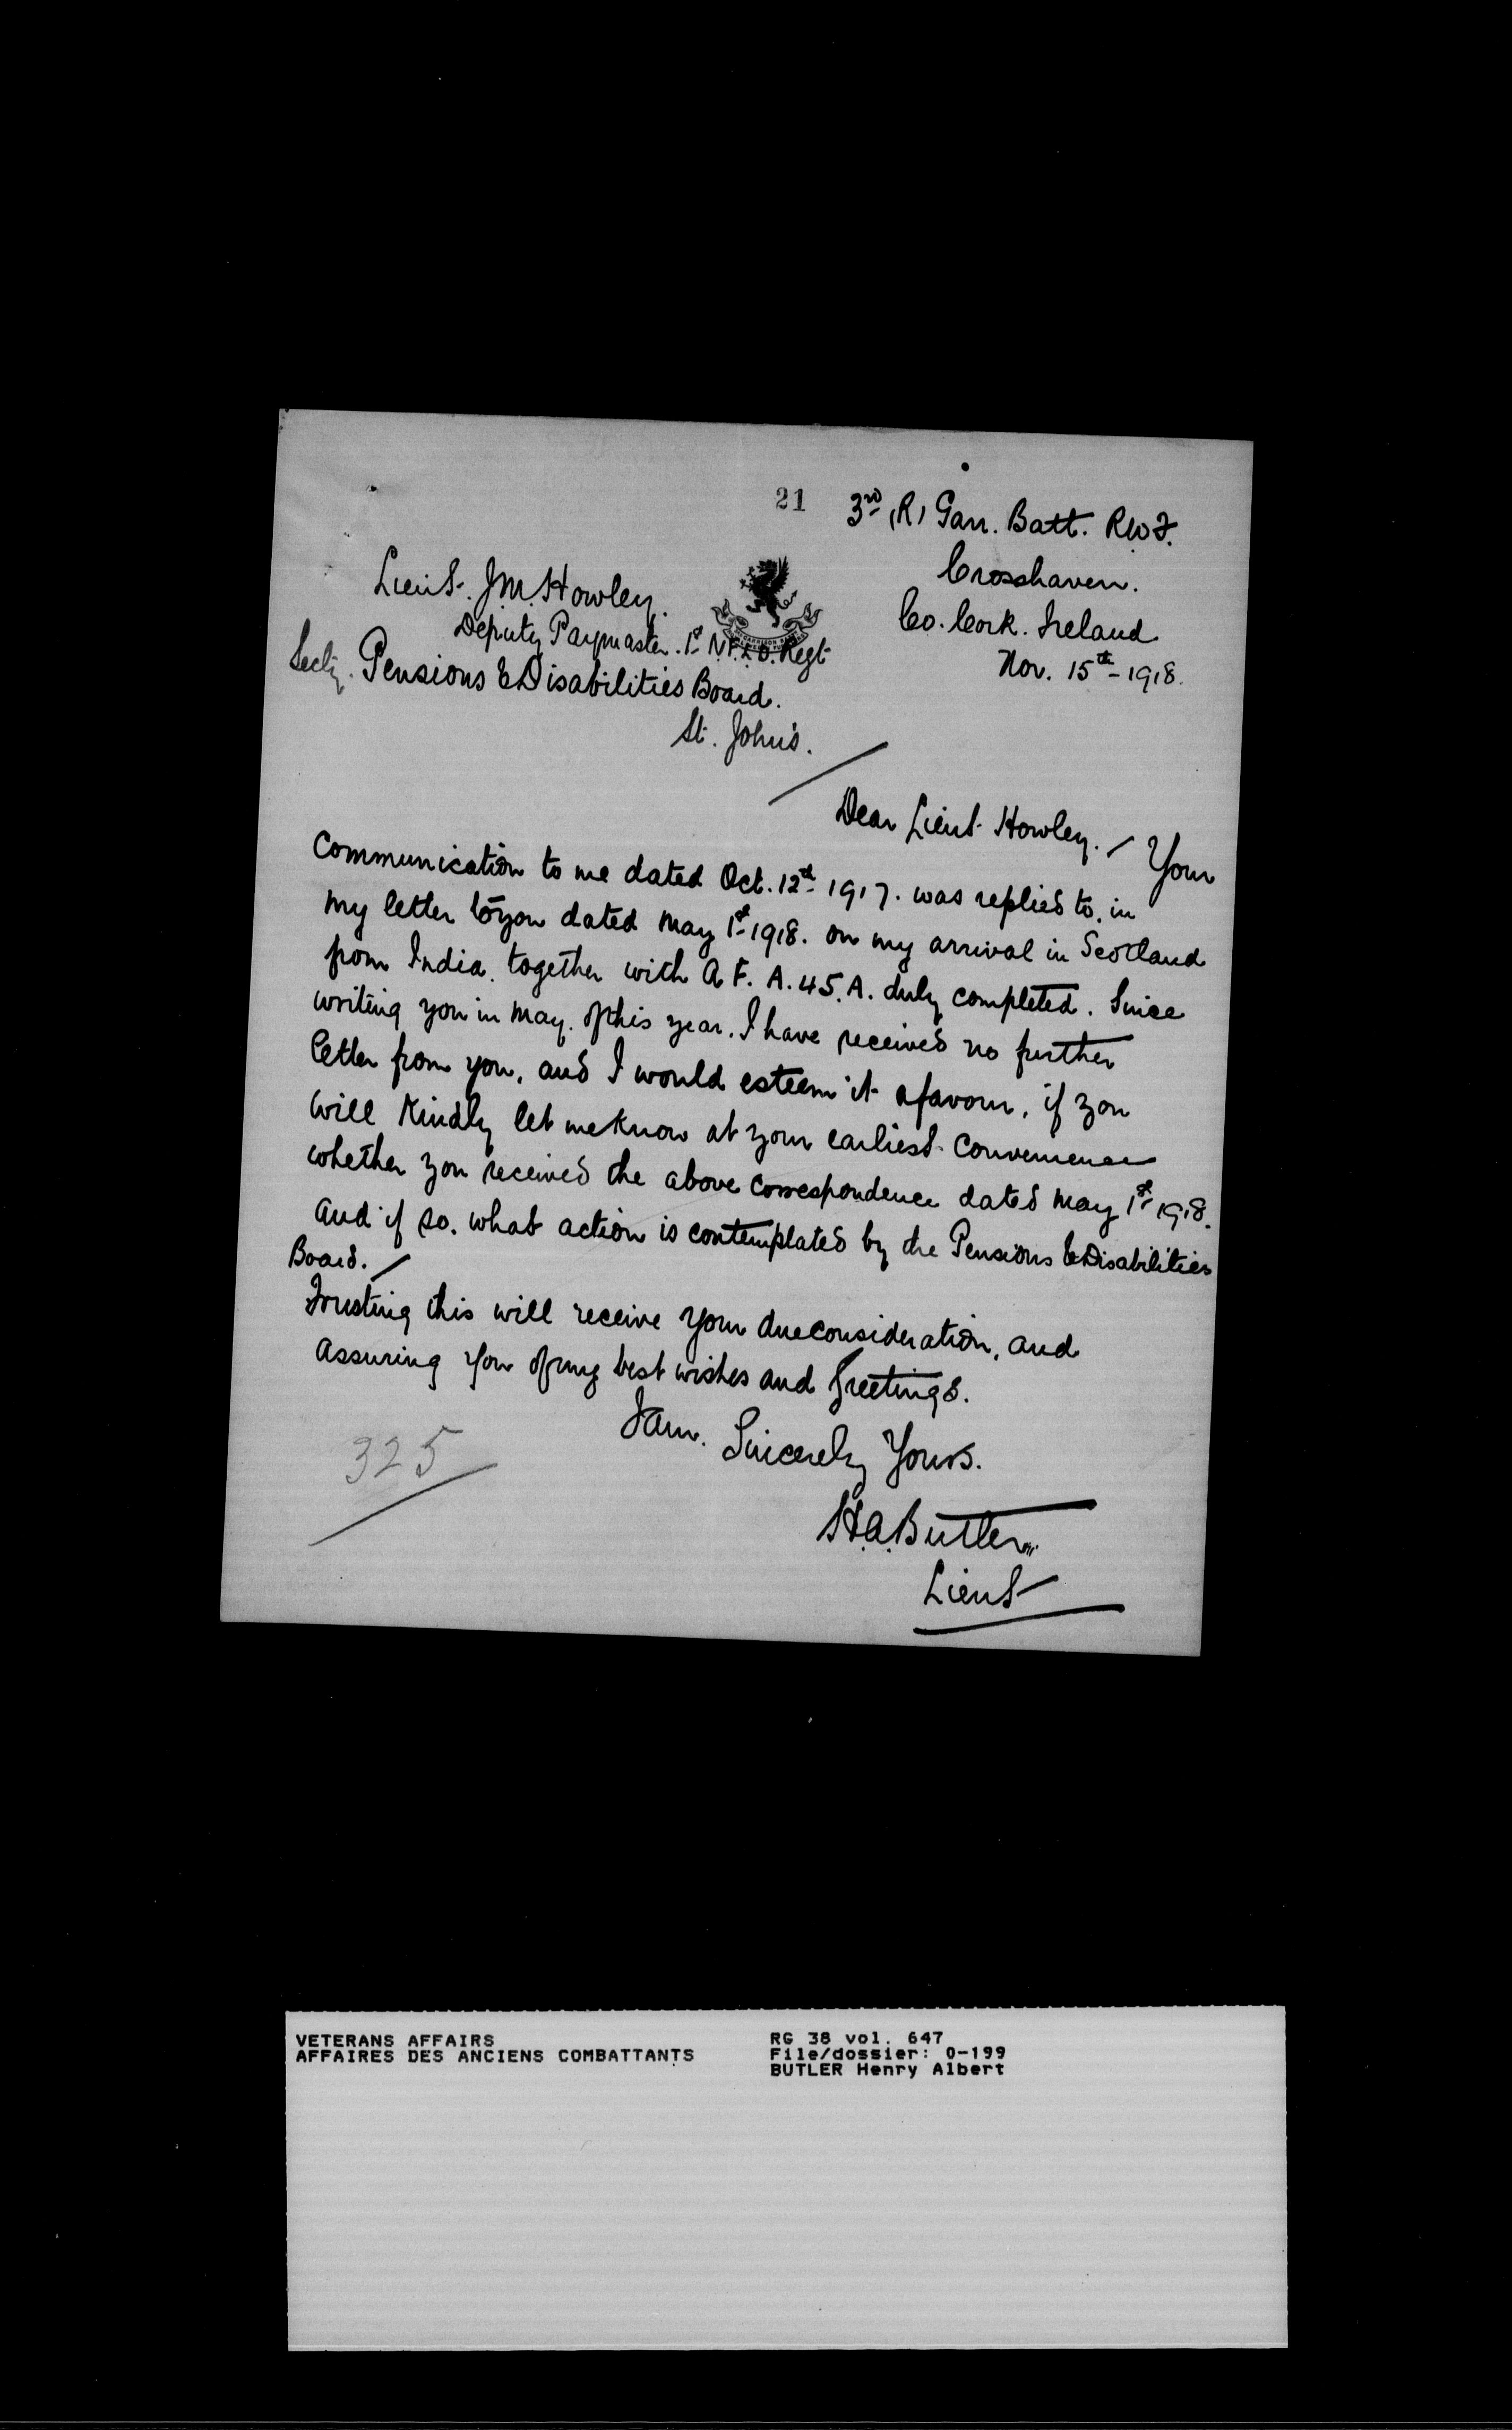 21
3rd (R) Garr. Batt. R.W.F.
Crosshaven.
Co. Cork. Ireland
Nov. 15th - 1918.
Lieut. J.M. Howley.
Deputy Paymaster. 1st N.F.L.D. Regt
Secty. Pensions & Disabilities Board.
St. John's.
Dear Lieut Howley. / Your
Communication to me dated Oct. 12th 1917. was replied to, in
my letter to you dated May 1st 1918. on my arrival in Scotland
from India, together with A.F. A.45.A. duly completed. Since
writing you in May. of this year. I have received no further
letter from you, and I would esteem it a favour, if you
will kindly let me know at your earliest convenience
whether you received the above correspondence dated May 1st 1918.
and if so. what action is contemplated by the Pensions & Disabilities
Board. /
Trusting this will receive your due consideration, and
assuring you of my best wishes and Greetings.
I am. Sincerely Yours.
H.A. Butler
Lieut
325
VETERANS AFFAIRS
AFFAIRES DES ANCIENS COMBATTANTS
RG 38 vol. 647
File/dossier: O-199
BUTLER Henry Albert